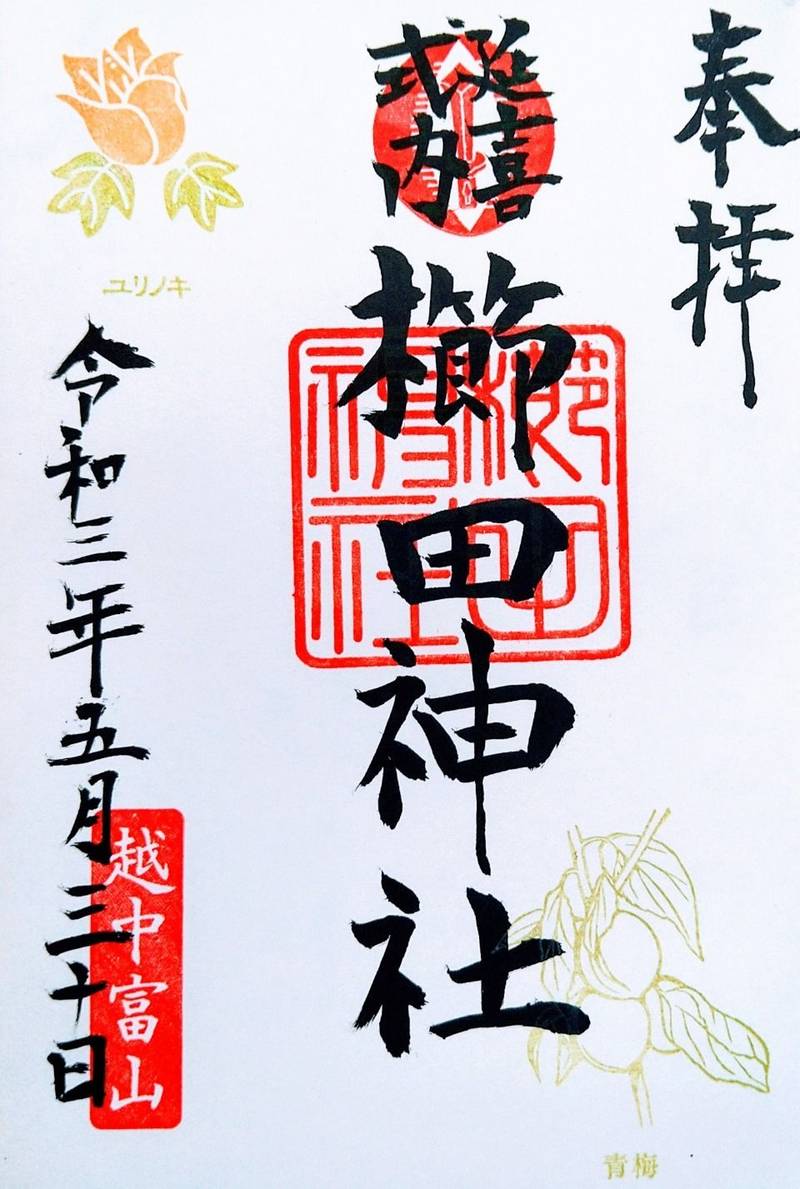 奉拝
延喜
式内
櫛田神社
櫛田
神社
令和三年五月三十日
越中富山
ユリノキ
青梅